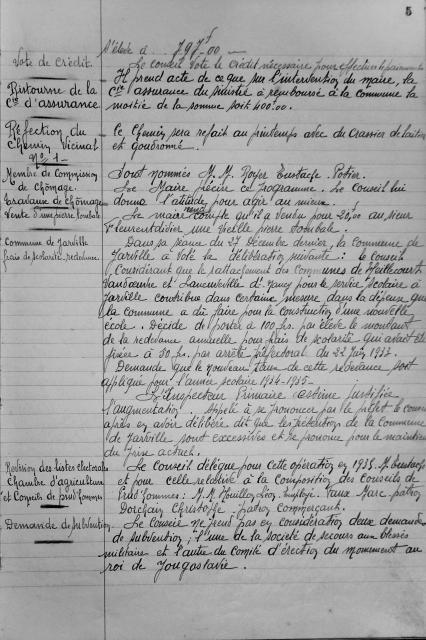 5
s'élève à ... 797f,00
Vote de crédit.
Le conseil vote le crédit nécessaire pour effectuer le paiement
Ristourne de la
Cie d'assurance.
Il prend acte de ce que sur l'intervention du maire, la
Cie d'assurance du sinistre a remboursé à la commune la
moitié de la somme soit 400.00.
Réfection du
Chemin Vicinal
No 1
Ce Chemin sera refait au printemps avec du crassier de laitier
et goudronné.
Membre de Commission
de Chômage.
Sont nommés M. M. Royer Eustache Potier.
Travaux de chômage
Le Maire précise ce programme. Le Conseil lui
donne l'attitude pour agir au mieux.
Vente d'une pierre tombale
Le maire rend compte qu'il a vendu pour 20,00 au sieur
une vieille pierre tombale.
Commune de Jarville
frais de scolarité, redevance.
Dans sa séance du 27 Décembre dernier, la commune de
Jarville a voté la délibération suivante : le Conseil
Considérant que le rattachement des Communes de Heillecourt
Vandoeuvre et Laneuveville-dt-Nancy pour le service scolaire à
Jarville contribue dans certaine mesure dans la dépense que
la commune a dû faire pour la construction d'une nouvelle
école. Décide de porter à 100 frs. par élève le montant
de la redevance annuelle pour frais de scolarité qui avait été
fixée à 50 frs. par arrêté préfectoral du 22 1933.
Demande que le nouveau taux de cette redevance soit
appliqué pour l'année scolaire 1934-1935-
L'Inspecteur Primaire estime justifiée
l'augmentation. Appelé à se prononcer par le préfet le conseil
après en avoir délibéré dit que les prétentions de la Commune
de Jarville sont excessives et se prononce pour le maintien
du prix actuel.
Révision des listes électorales
Chambre d'agriculture
et Conseils de prud'hommes
Le Conseil délègue pour cette opération en 1935. M. Eustache
et pour celle relative à la composition des conseils de
Prud'hommes : M. M. Léon. Employé. Marc. patron
Christophe. patron commerçant.
Demande de subvention
Le Conseil ne prend pas en considération deux demandes
de subvention ; l'une de la société de secours aux blessés
militaires et l'autre du Comité d'érection du monument au
roi de Yougoslavie.